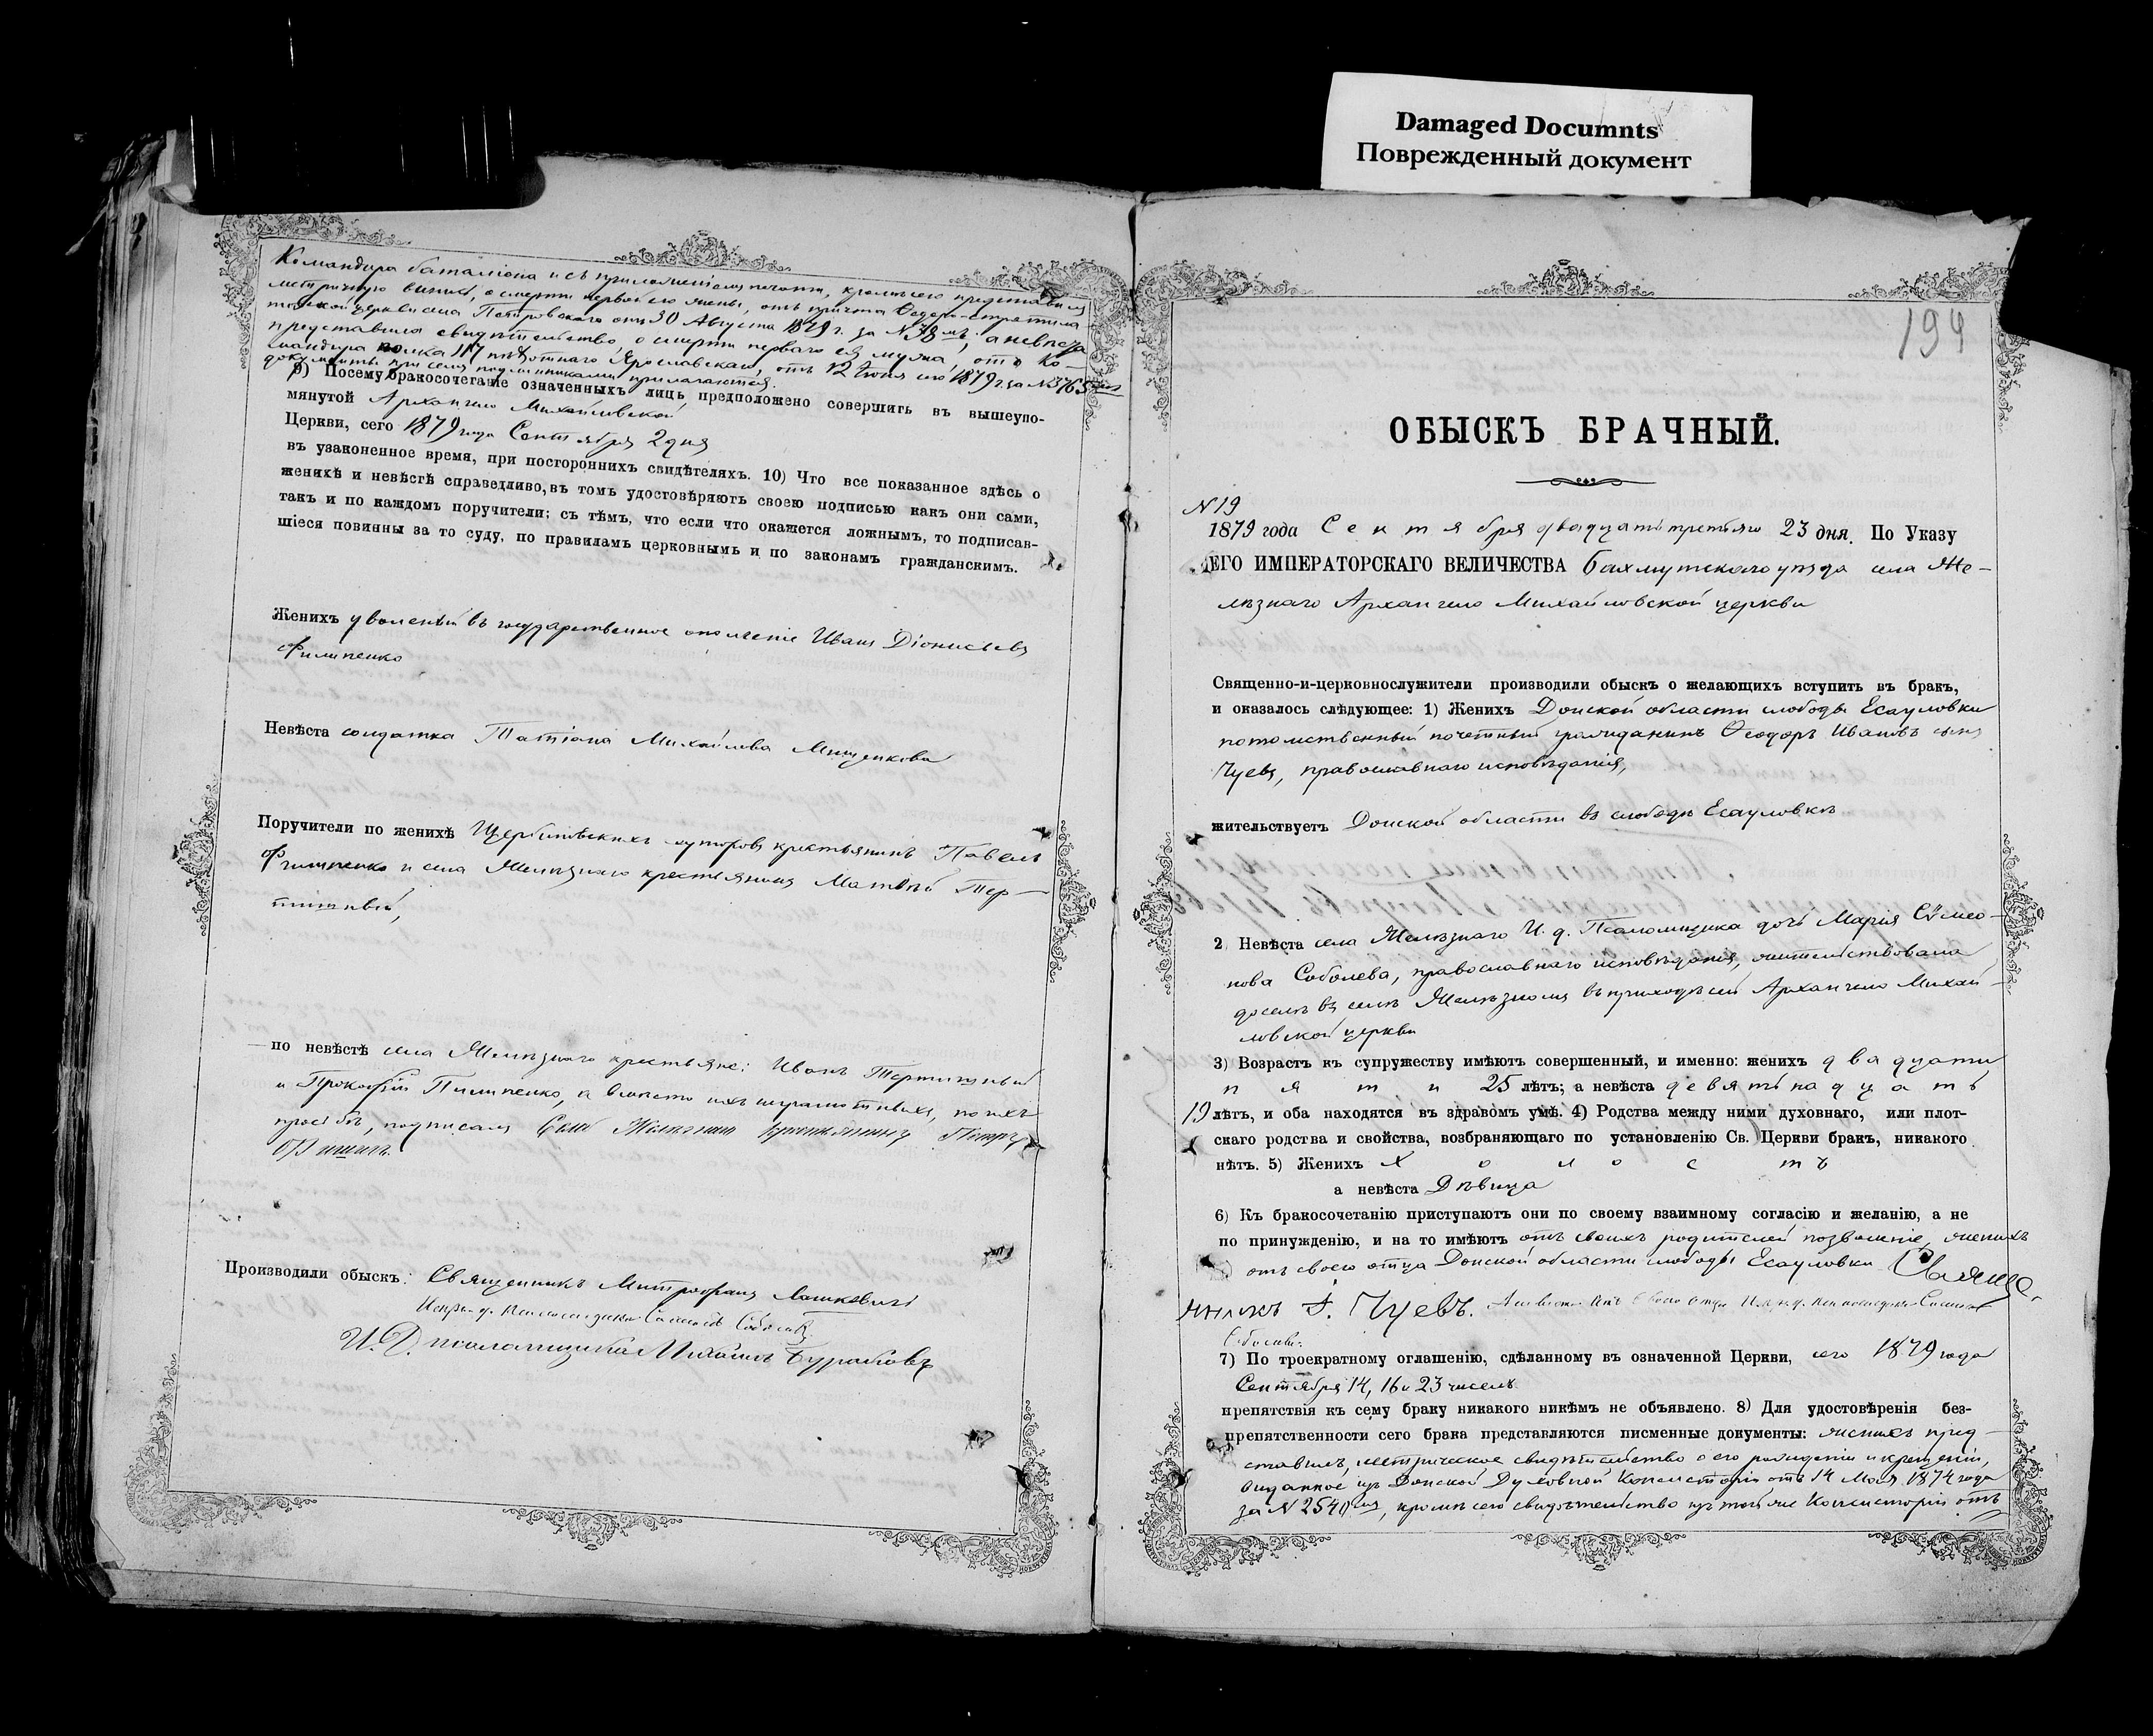 Damaged Documnts
Поврежденный документ
Командира баталіона и съ приложеніемъ печати, кромѣ сего представилъ
метричную выпись, о смерти первой его жены, отъ причта Ѳедоро-стратила-
товской церкви села Петровскаго отъ 30 Августа 1879 г. за № 78мъ, а невѣста
представила свидѣтельство, о смерти перваго ея мужа, отъ Ко-
мандира полка 117 пѣхотнаго Ярославскаго, отъ 12 Іюня сего 1879 г. за № 3765
документы при семъ подлинниками прилагаются.
9) Посему бракосочетаніе означенныхъ лицъ предположено совершить въ вышеупо-
мянутой Архангело Михайловской
Церкви, сего 1879 года Сентября 2 дня
въ узаконенное время, при постороннихъ свидѣтеляхъ. 10) Что все показанное здѣсь о
женихѣ и невѣстѣ справедливо, въ томъ удостовѣряютъ своею подписью какъ они сами,
такъ и по каждомъ поручители; съ тѣмъ, что если что окажется ложнымъ, то подписав-
шіеся повинны за то суду, по правиламъ церковнымъ и по законамъ гражданскимъ.
Женихъ уволеный въ государственное ополченіе Иванъ Діонисіевъ
Филипенко
Невѣста солдатка Татіана Михайлова Мищенкова
Поручители по женихѣ Щербиновскихъ хуторовъ крестьянинъ Павелъ
Филипенко и села Желѣзнаго крестьянинъ Матвѣй Тер-
тишный,
по невѣстѣ села Желѣзнаго крестьяне: Иванъ Тертишный
и Прокофій Пилипенко, а вмѣсто ихъ неграмотныхъ, по ихъ
просьбѣ, подписалъ Села Желѣзнаго крестьянинъ Петръ
Производили обыскъ: Священникъ Митрофанъ Лашкевичъ
Испр. д. псаломщика Симеонъ Соболевъ
И. Д. псаломщика Михаилъ Бураковъ
194
ОБЫСКЪ БРАЧНЫЙ.
№ 19
1879 года Сентября двадцать третьяго 23 дня. По Указу
ЕГО ИМПЕРАТОРСКАГО ВЕЛИЧЕСТВА Бахмутскаго уѣзда села Же-
лѣзнаго Архангело Михайловской церкви
Священно-и-церковнослужители производили обыскъ о желающихъ вступить въ бракъ,
и оказалось слѣдующее: 1) Женихъ Донской области слободы Есауловки
потомственный почетный гражданинъ Ѳеодоръ Ивановъ сынъ
Чуевъ, православнаго исповѣданія,
жительствуетъ Донской области въ слободѣ Есауловкѣ
2) Невѣста села Желѣзнаго И. д. Псаломщика дочь Марія Сѵмео-
нова Соболева, православнаго исповѣданія, жительствовала
доселѣ въ селѣ Желѣзномъ въ приходѣ сей Архангело Михай-
ловской церкви
3) Возрастъ къ супружеству имѣютъ совершенный, и именно: женихъ двадцати
пяти 25 лѣтъ; а невѣста девятнадцать
19 лѣтъ, и оба находятся въ здравомъ умѣ. 4) Родства между ними духовнаго, или плот-
скаго родства и свойства, возбраняющаго по установленію Св. Церкви бракъ, никакого
нѣтъ. 5) Женихъ холостъ
а невѣста Дѣвица
6) Къ бракосочетанію приступаютъ они по своему взаимному согласію и желанію, а не
по принужденію, и на то имѣютъ отъ своихъ родителей позволеніе, женихъ
отъ своего отца Донской области слободы Есауловки Свяще-
нникъ І. Чуевъ. А невѣста отъ своего отца И. д. псаломщика Симеона
Соболева.
7) По троекратному оглашенію, сдѣланному въ означенной Церкви, сего 1879 года
Сентября 14, 16 и 23 числъ
препятствія къ сему браку никакого никѣмъ не объявлено. 8) Для удостовѣренія без-
препятственности сего брака представляются писменные документы: женихъ пред-
ставилъ, метрическое свидѣтельство о его рожденіи и крещеніи,
выданное изъ Донской Духовной Консисторіи отъ 14 Мая 1874 года
за № 2540мъ, кромѣ сего свидѣтельство изъ той же Консисторіи отъ